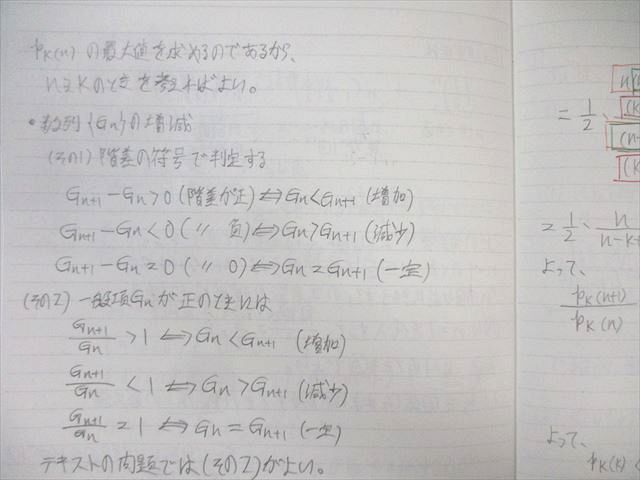 P_K(n) の最大値を求めるのであるから、
n≧Kのときを考えればよい。
・数列{Gn}の増減
(その1) 階差の符号で判定する
Gn+1 - Gn > 0 (階差が正) ⇔ Gn < Gn+1 (増加)
Gn+1 - Gn < 0 ( 〃 負) ⇔ Gn > Gn+1 (減少)
Gn+1 - Gn = 0 ( 〃 0) ⇔ Gn = Gn+1 (一定)
(その2) 一般項Gnが正のときには
Gn+1/Gn > 1 ⇔ Gn < Gn+1 (増加)
Gn+1/Gn < 1 ⇔ Gn > Gn+1 (減少)
Gn+1/Gn = 1 ⇔ Gn = Gn+1 (一定)
テキストの問題では(その2)がよい。
= 1/2 ·
= 1/2 · n/n-k+
よって、
P_K(n+1)/P_K(n)
よって、
P_K(K) <